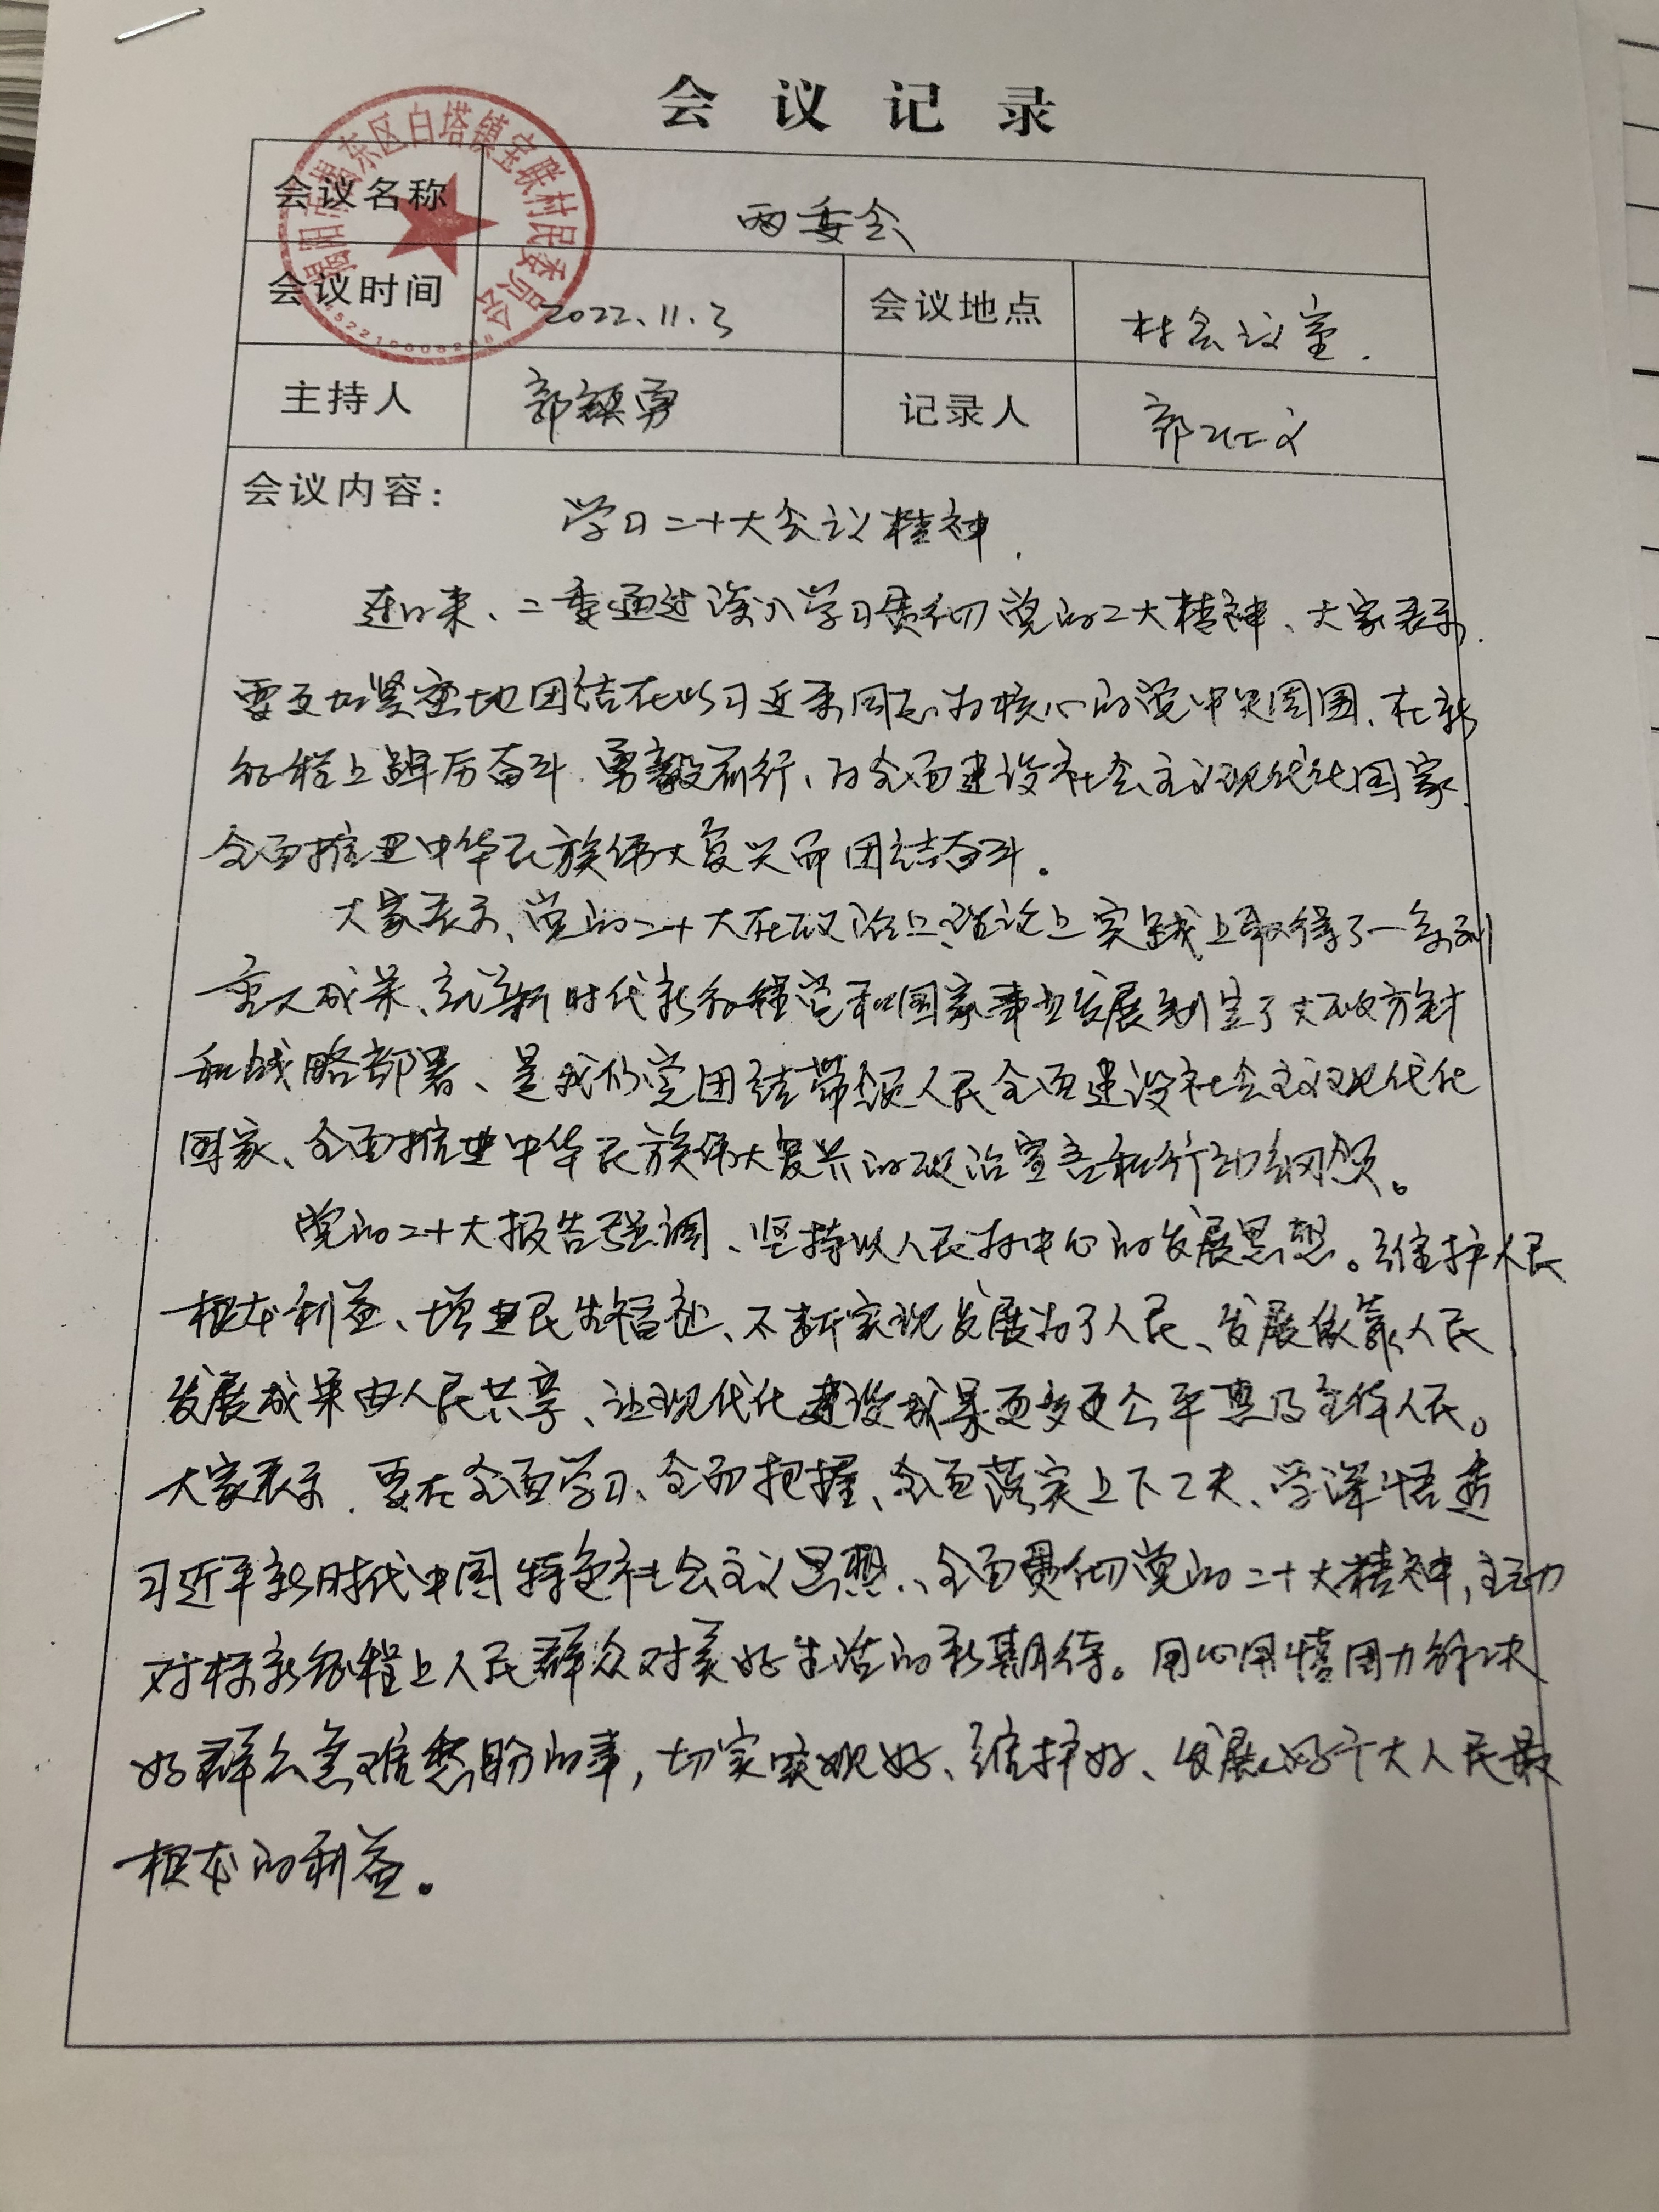 会议记录
揭阳市揭东区白塔镇宝联村民委员会
会议名称 两委会
会议时间 2022.11.3 会议地点 村会议室.
主持人 郭镇勇 记录人 郭
会议内容: 学习二十大会议精神.
连日来、二委通过深入学习贯彻党的二大精神、大家表示.
要更加紧密地团结在以习近平同志为核心的党中央周围、在新
征程上踔厉奋斗.勇毅前行、为全面建设社会主义现代化国家.
全面推进中华民族伟大复兴而团结奋斗。
大家表示、党的二十大在政治上、理论上实践上取得了一系列
重大成果、就新时代新征程党和国家事业发展制定了大政方针
和战略部署、是我们党团结带领人民全面建设社会主义现代化
国家、全面推进中华民族伟大复兴的政治宣言和行动纲领。
党的二十大报告强调、坚持以人民为中心的发展思想。维护人民
根本利益、增进民生福祉、不断实现发展为了人民、发展依靠人民.
发展成果由人民共享、让现代化建设成果更多更公平惠及全体人民。
大家表示.要在全面学习、全面把握、全面落实上下工夫、学深悟透
习近平新时代中国特色社会主义思想、全面贯彻党的二十大精神,主动
对标新征程上人民群众对美好生活的新期待。用心用情用力解决
好群众急难愁盼的事,切实实现好、维护好、发展好广大人民最
根本的利益。